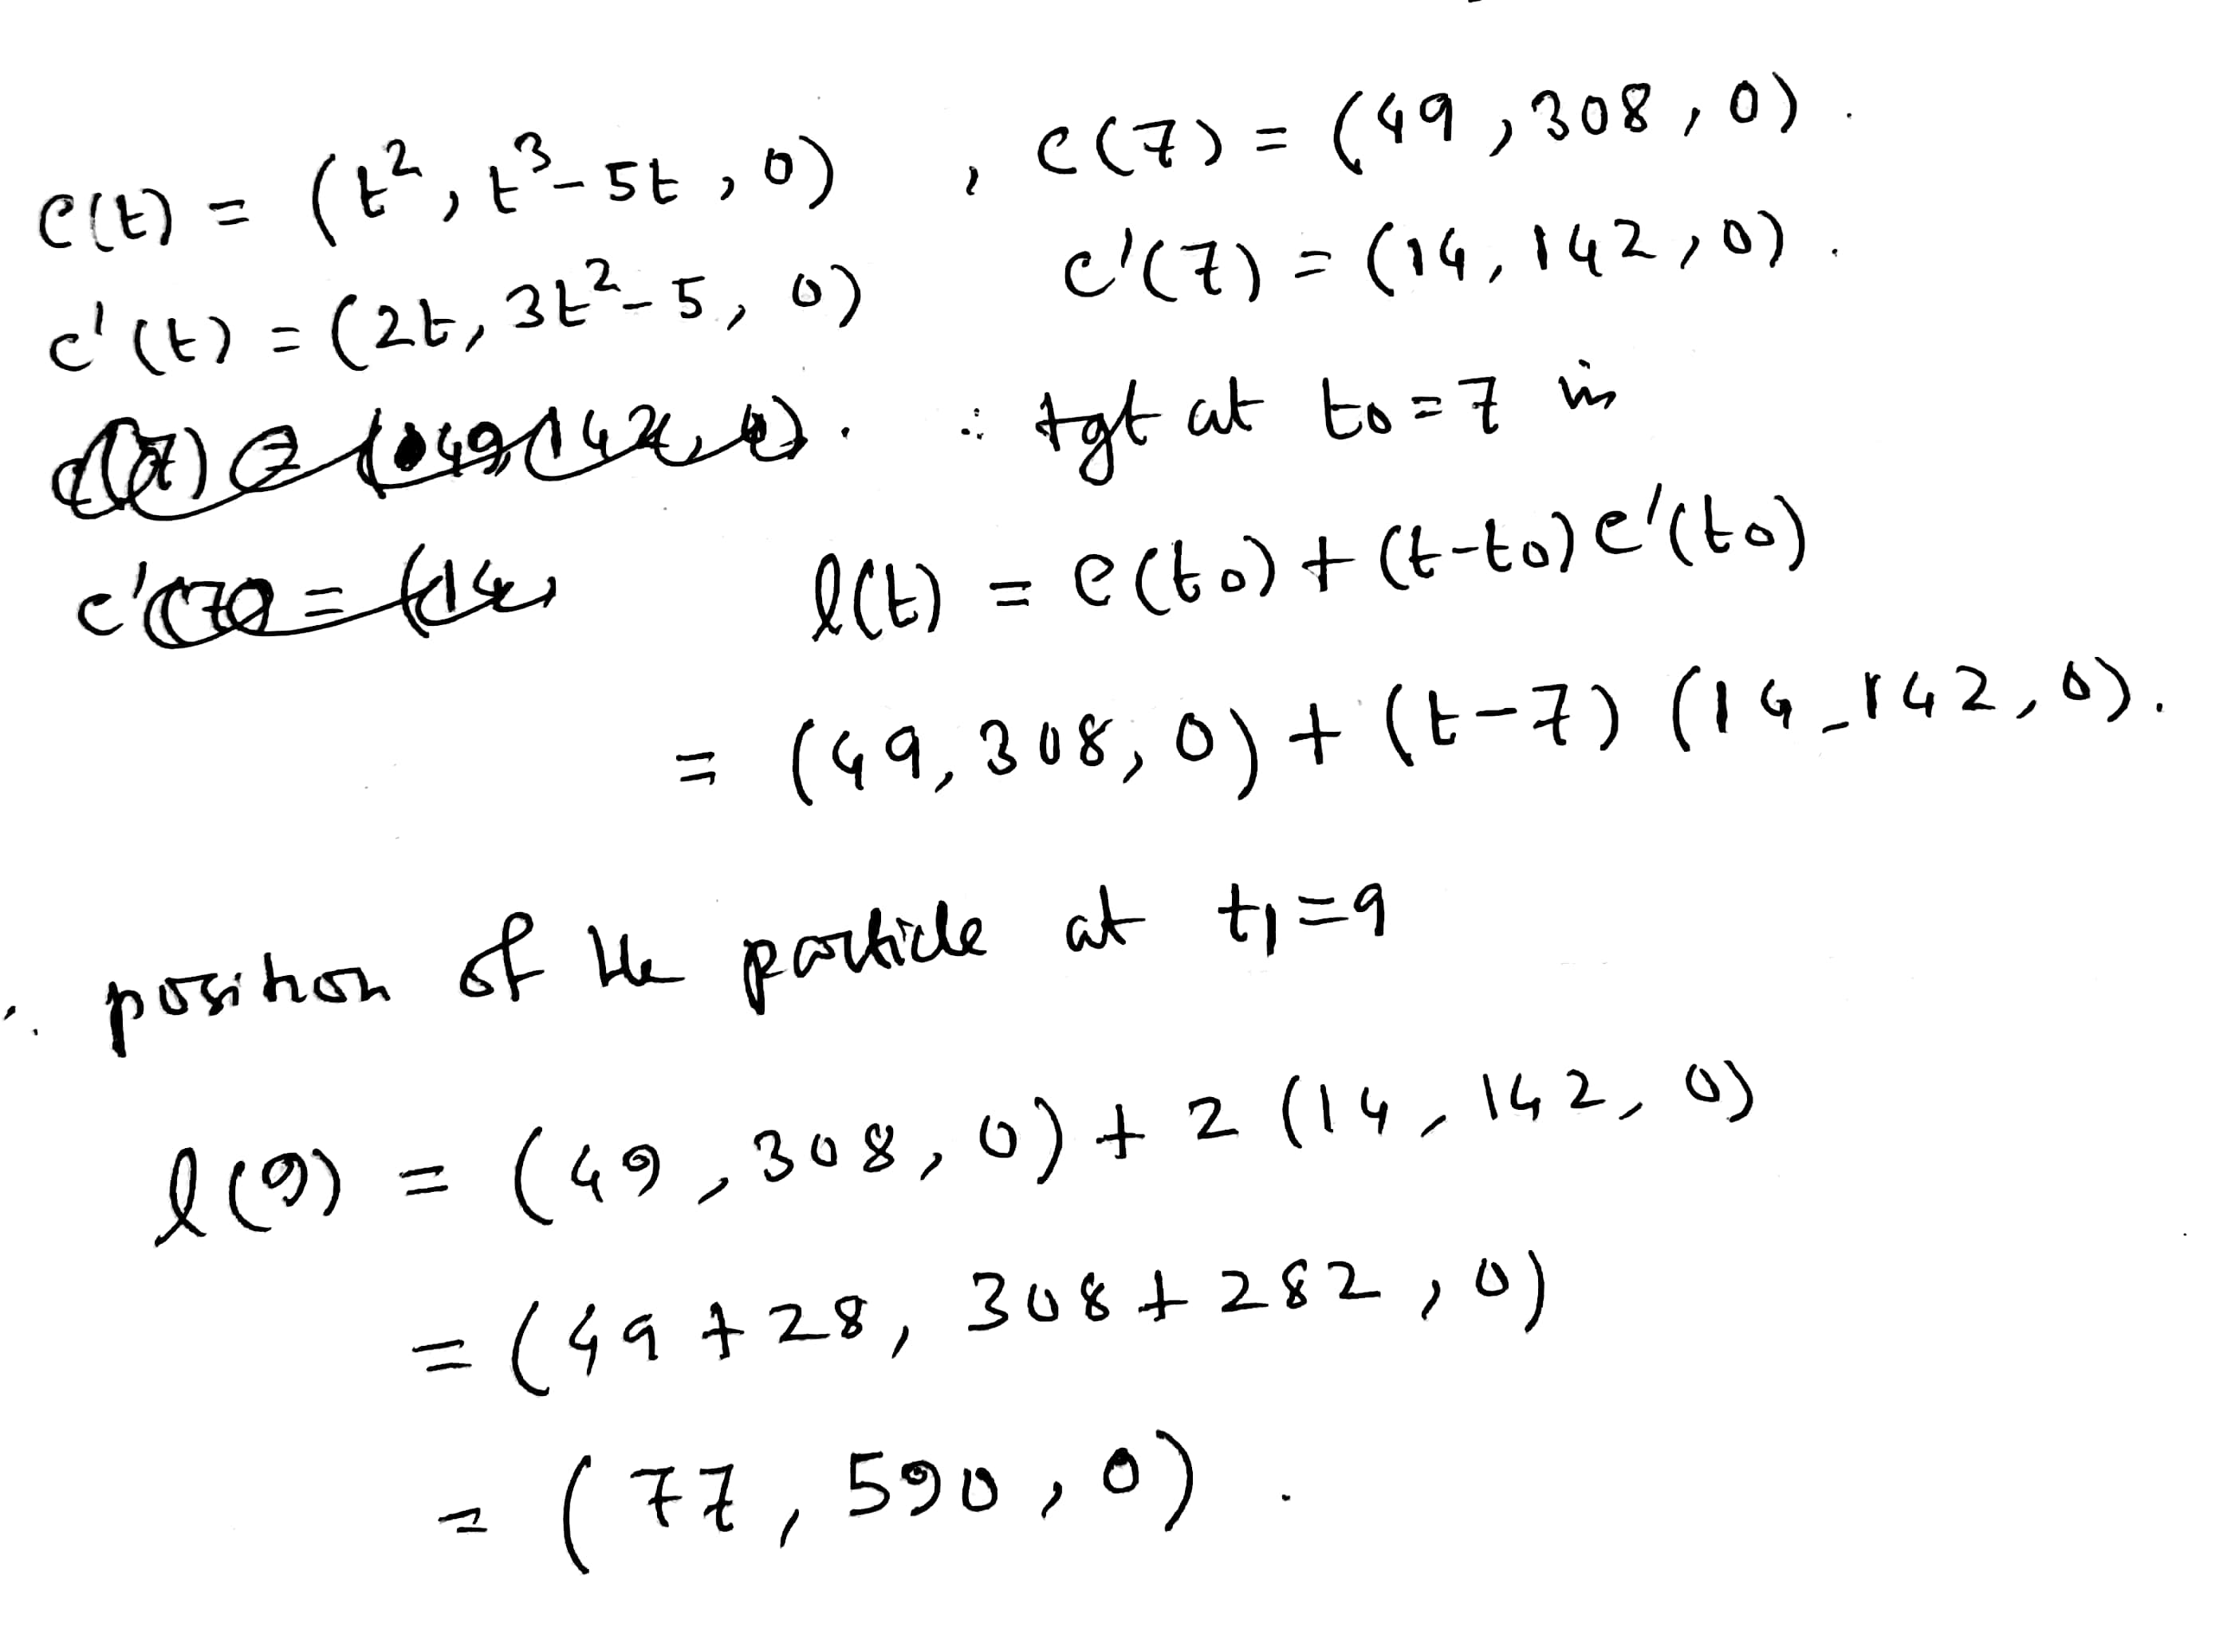 c(t) = (t², t³-5t, 0) , c(7) = (49, 308, 0).
c'(t) = (2t, 3t²-5, 0) c'(7) = (14, 142, 0).
∴ tgt at t₀=7 is
l(t) = c(t₀) + (t-t₀) c'(t₀)
= (49, 308, 0) + (t-7) (14, 142, 0).
∴ position of the particle at t₁=9
l(9) = (49, 308, 0) + 2 (14, 142, 0)
= (49+28, 308+282, 0)
= (77, 590, 0).